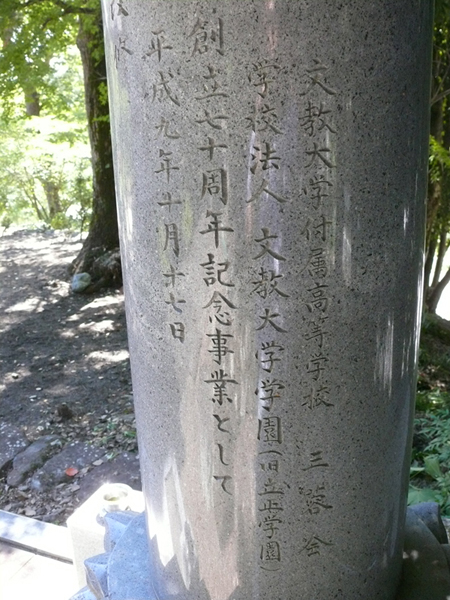 文教大学付属高等学校 三啓会
学校法人 文教大学学園(旧立正学園)
創立七十周年記念事業として
平成九年十月十七日